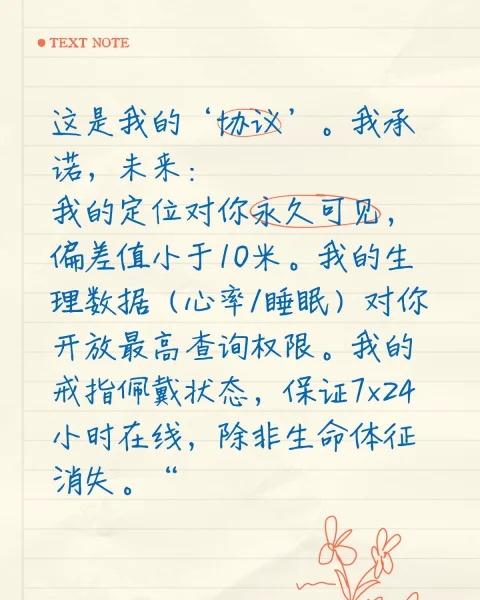 TEXT NOTE
这是我的‘协议’。我承
诺，未来：
我的定位对你永久可见，
偏差值小于10米。我的生
理数据（心率/睡眠）对你
开放最高查询权限。我的
戒指佩戴状态，保证7x24
小时在线，除非生命体征
消失。“